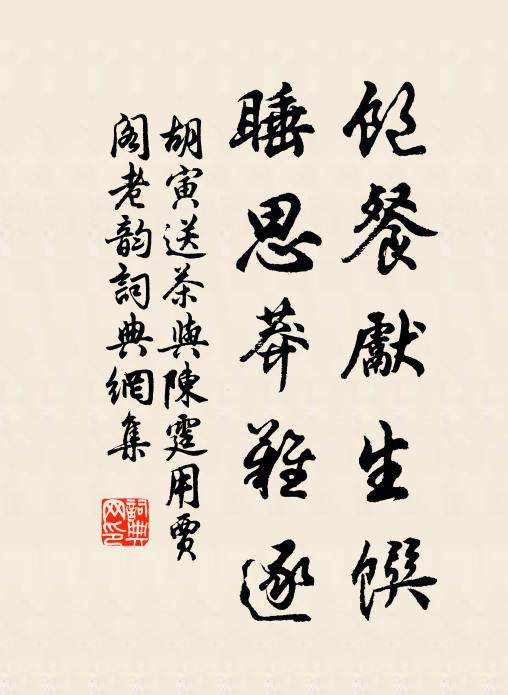 飽餐獻生饌
睡思莽難逐
胡寅送茶與陳霆用賈
閣老韵詞典網集
詞典网印